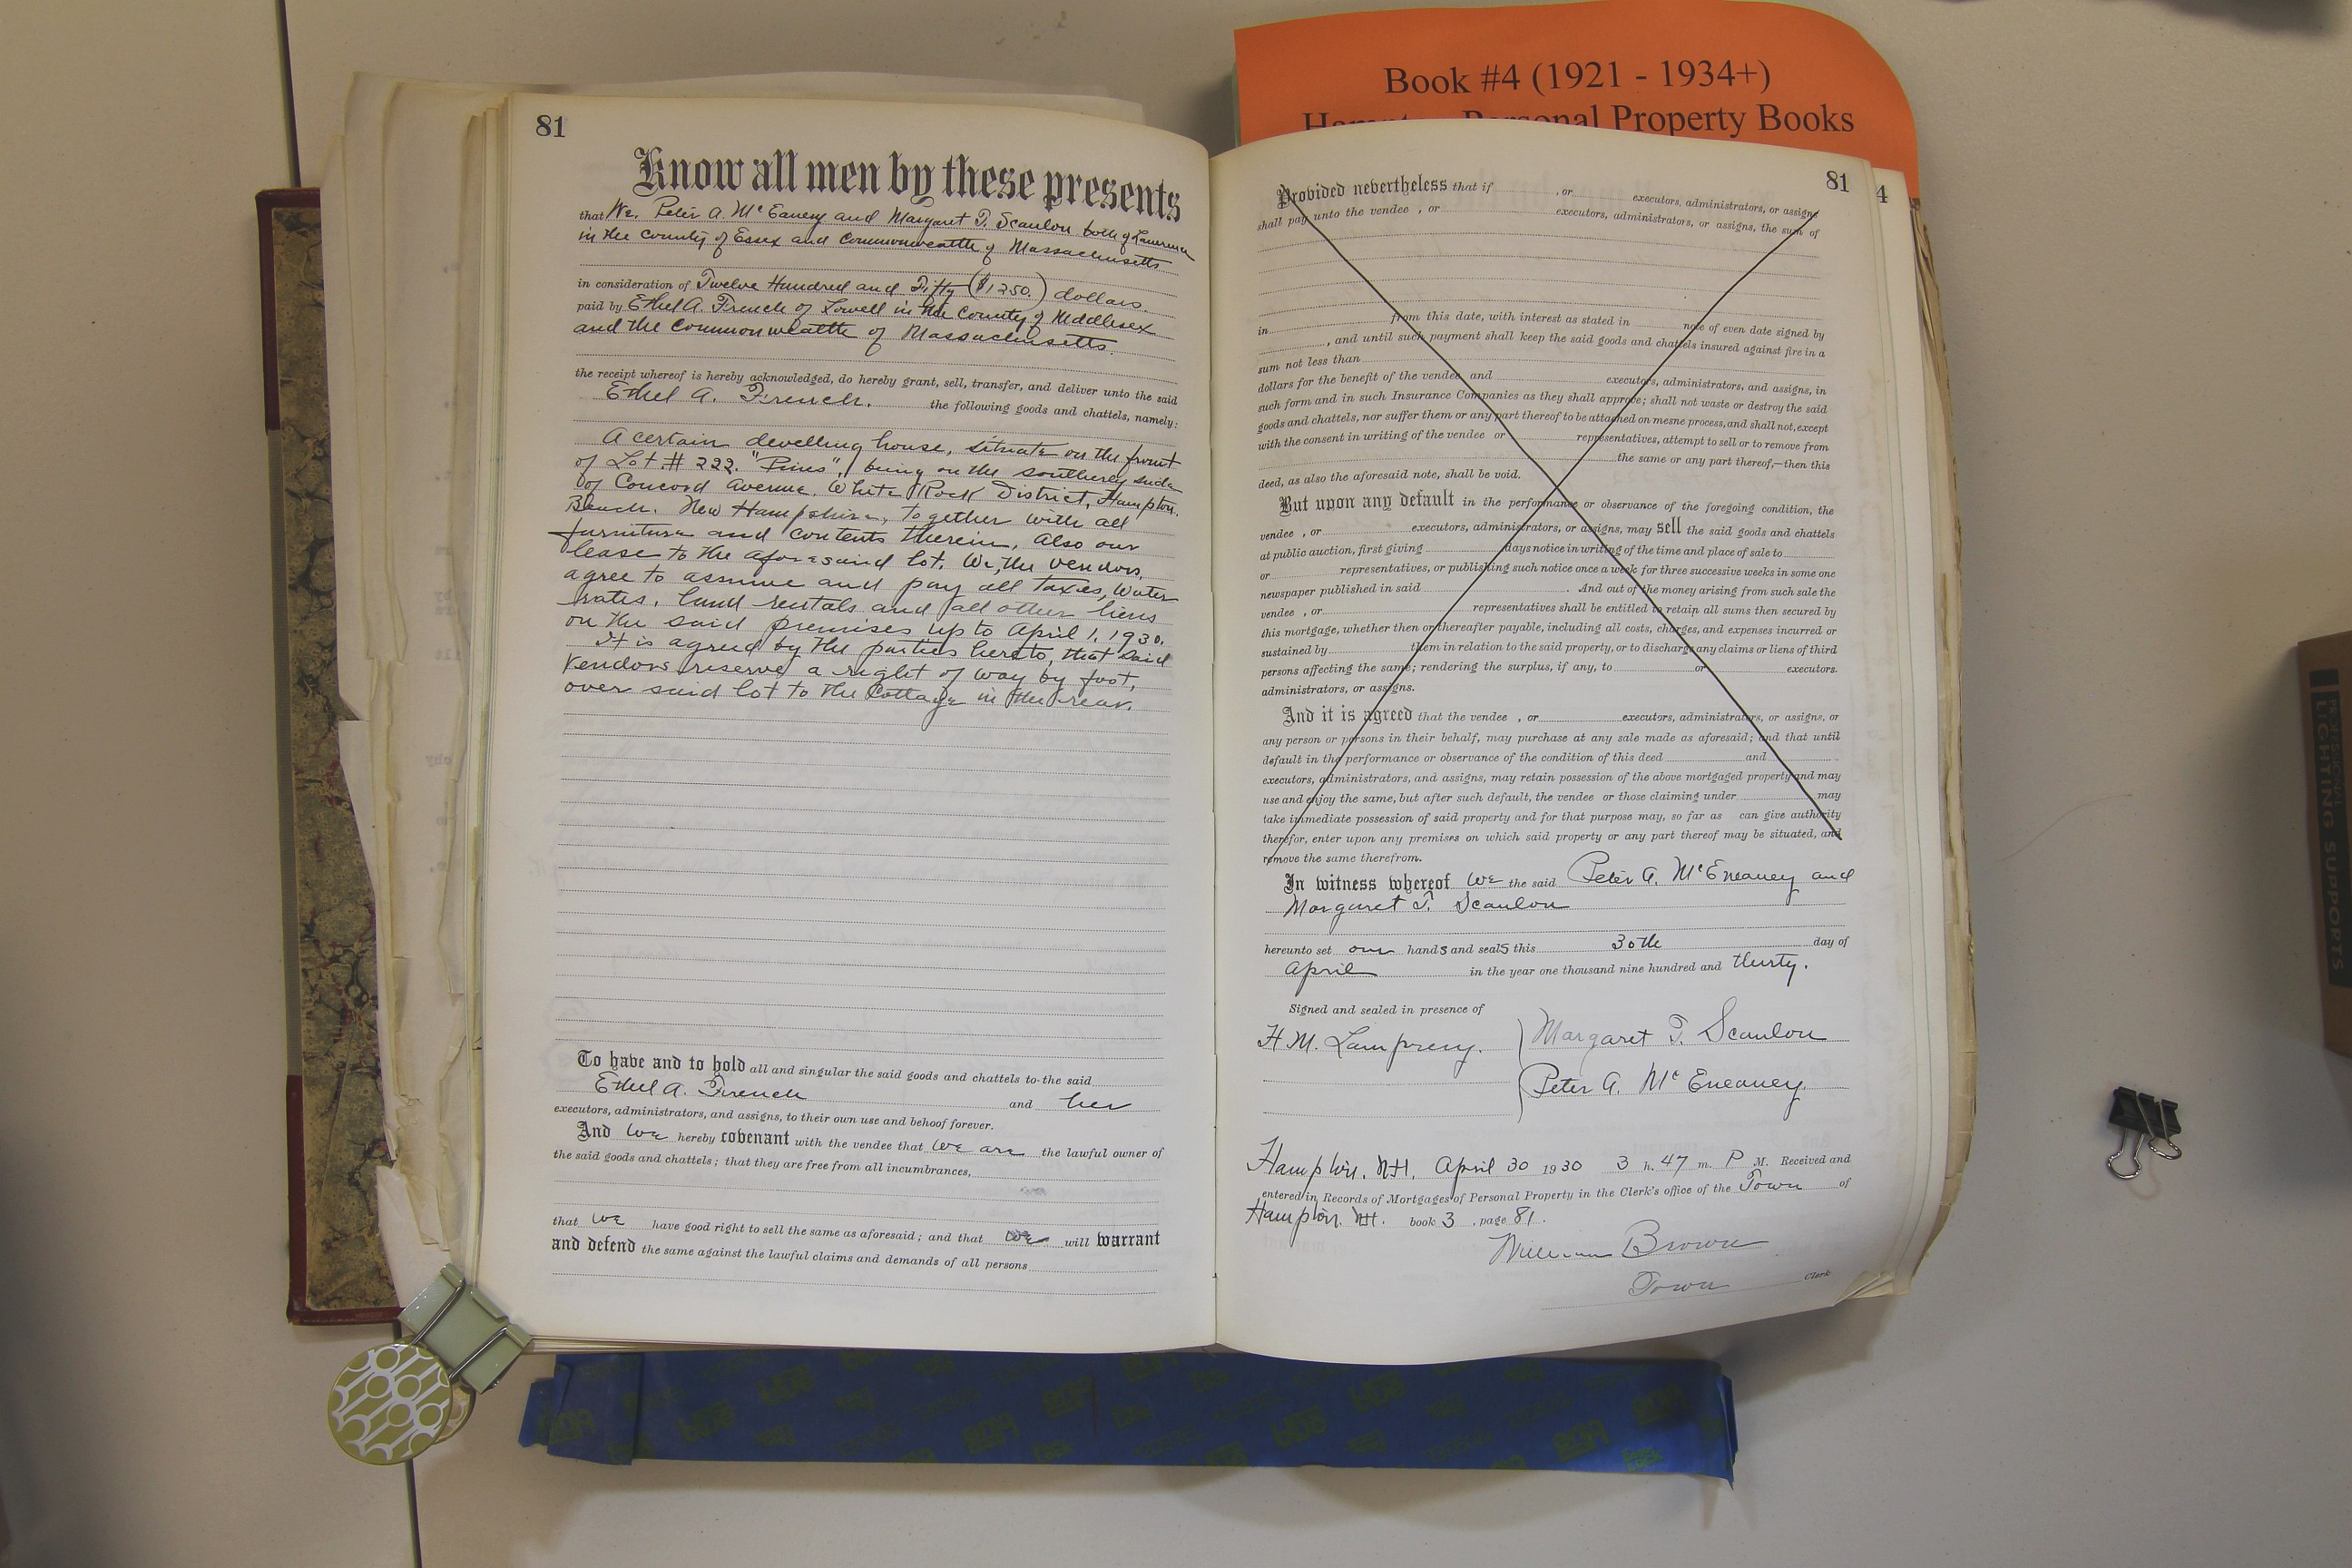 Book #4 (1921 - 1934+)
Personal Property Books
81
Know all men by these presents
that We, Peter A. McEaneny and Margaret T. Scanlon both of Lawrence
in the County of Essex and Commonwealth of Massachusetts
in consideration of Twelve Hundred and Fifty ($1250.) dollars.
paid by Ethel A. French of Lowell in the County of Middlesex
and the Commonwealth of Massachusetts.
the receipt whereof is hereby acknowledged, do hereby grant, sell, transfer, and deliver unto the said
Ethel A. French. the following goods and chattels, namely:
A certain dwelling house, situate on the front
of Lot # 222. "Pines", being on the southerly side
of Concord Avenue. White Rock District, Hampton
Beach. New Hampshire, together with all
furniture and contents therein, Also our
lease to the aforesaid lot. We, the vendors,
agree to assume and pay all taxes, water
rates, land rentals and all other liens
on the said premises up to April 1, 1930.
It is agreed by the parties hereto, that said
vendors reserve a right of way by foot,
over said lot to the Cottage in the rear.
To have and to hold all and singular the said goods and chattels to the said
Ethel A. French and her
executors, administrators, and assigns, to their own use and behoof forever.
And we hereby covenant with the vendee that we are the lawful owner of
the said goods and chattels; that they are free from all incumbrances,
that we have good right to sell the same as aforesaid; and that we will warrant
and defend the same against the lawful claims and demands of all persons
81
4
Provided nevertheless that if , or executors, administrators, or assigns
shall pay unto the vendee , or executors, administrators, or assigns, the sum of
in from this date, with interest as stated in note of even date signed by
, and until such payment shall keep the said goods and chattels insured against fire in a
sum not less than
dollars for the benefit of the vendee and executors, administrators, and assigns, in
such form and in such Insurance Companies as they shall approve; shall not waste or destroy the said
goods and chattels, nor suffer them or any part thereof to be attached on mesne process, and shall not, except
with the consent in writing of the vendee or representatives, attempt to sell or to remove from
the same or any part thereof,—then this
deed, as also the aforesaid note, shall be void.
But upon any default in the performance or observance of the foregoing condition, the
vendee , or executors, administrators, or assigns, may sell the said goods and chattels
at public auction, first giving days notice in writing of the time and place of sale to
or representatives, or publishing such notice once a week for three successive weeks in some one
newspaper published in said . And out of the money arising from such sale the
vendee , or representatives shall be entitled to retain all sums then secured by
this mortgage, whether then or thereafter payable, including all costs, charges, and expenses incurred or
sustained by them in relation to the said property, or to discharge any claims or liens of third
persons affecting the same; rendering the surplus, if any, to or executors.
administrators, or assigns.
And it is agreed that the vendee , or executors, administrators, or assigns, or
any person or persons in their behalf, may purchase at any sale made as aforesaid; and that until
default in the performance or observance of the condition of this deed and
executors, administrators, and assigns, may retain possession of the above mortgaged property and may
use and enjoy the same, but after such default, the vendee or those claiming under may
take immediate possession of said property and for that purpose may, so far as can give authority
therefor, enter upon any premises on which said property or any part thereof may be situated, and
remove the same therefrom.
In witness whereof we the said Peter A. McEneaney and
Margaret T. Scanlon
hereunto set our hands and seals this 30th day of
April in the year one thousand nine hundred and thirty.
Signed and sealed in presence of
H. M. Lamprey. Margaret T. Scanlon
Peter A. McEneaney
Hampton, N.H. April 30 1930 3 h. 47 m. P M. Received and
entered in Records of Mortgages of Personal Property in the Clerk's office of the Town of
Hampton, N.H. book 3 , page 81.
William Brown
Town Clerk
LIGHTING SUPPORTS